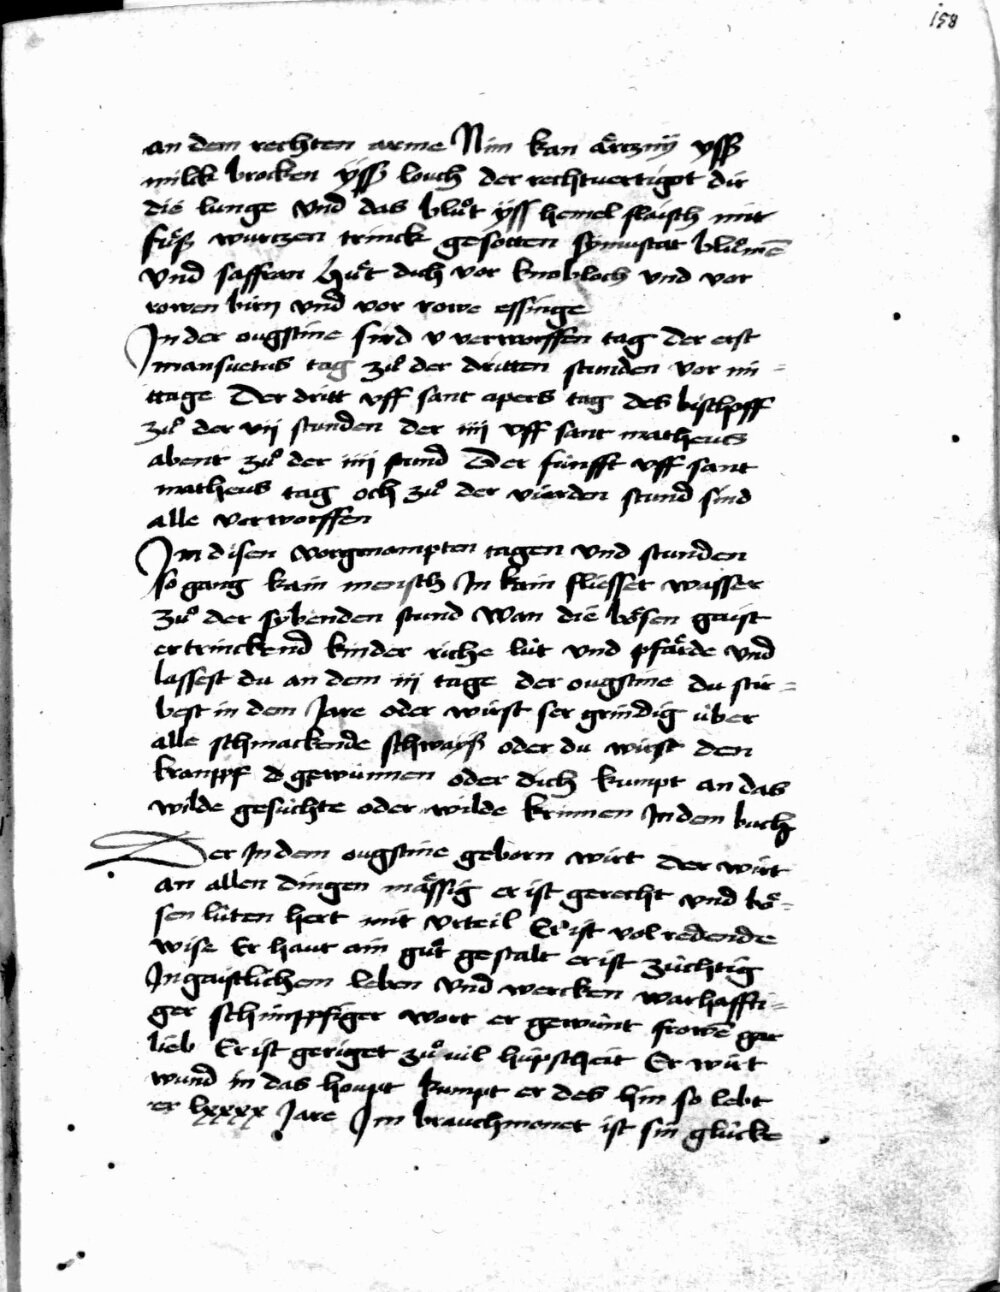 158
an dem rechten arme Nim kan ärczny yss
milck brocken yss louch der rechtvertigot dir
die lunge vnd das blůt yss hemel flaisch mit
füß wurczen trinck gesotten blůmē
vnd saffran Hüt dich vor knobloch vnd vor
rowen birn vnd vor rowe essinge
In der ougstine sind v verworffen tag Der erst
mansuetus tag zů der dritten stunden vor mi=
ttage Der dritt vff sant apers tag des bischoff
zů der vij stunden der iiij vff sant matheus
abent zů der iiij stund Der fünfft vff sant
matheus tag och zů der vierden stund sind
alle verworffen
In disen vorgenampten tagen vnd stunden
so gang kain mensch In kain fliesset wasser
zů der sybenden stund Wan die bösen gaist
ertrinckend kinder riche lüt vnd pfärde vnd
lassest du an dem iij tage der ougstine du stir=
best in dem Jare oder wirst ser grindig über
alle schmackende schwarß oder du wirst den
krampf gewinnen oder dich kumpt an das
wilde gesüchte oder wilde krimen In dem buch
Der In dem ougstine geborn wirt der wirt
an allen dingen mässig er ist gerecht vnd bö=
sen lüten hert mit vrteil Er ist vol redende
wise Er haut ain gůt gestalt er ist züchtig
In gaistlichem leben vnd wercken warhaffti=
ger schimpfiger wort er gewint frowē gar
lieb Er ist geriget zů vil hüpscheit Er wirt
wund in das houpt kumpt er des hin so lebt
er lxxxx Jare Im brauchmonet ist sin glücke